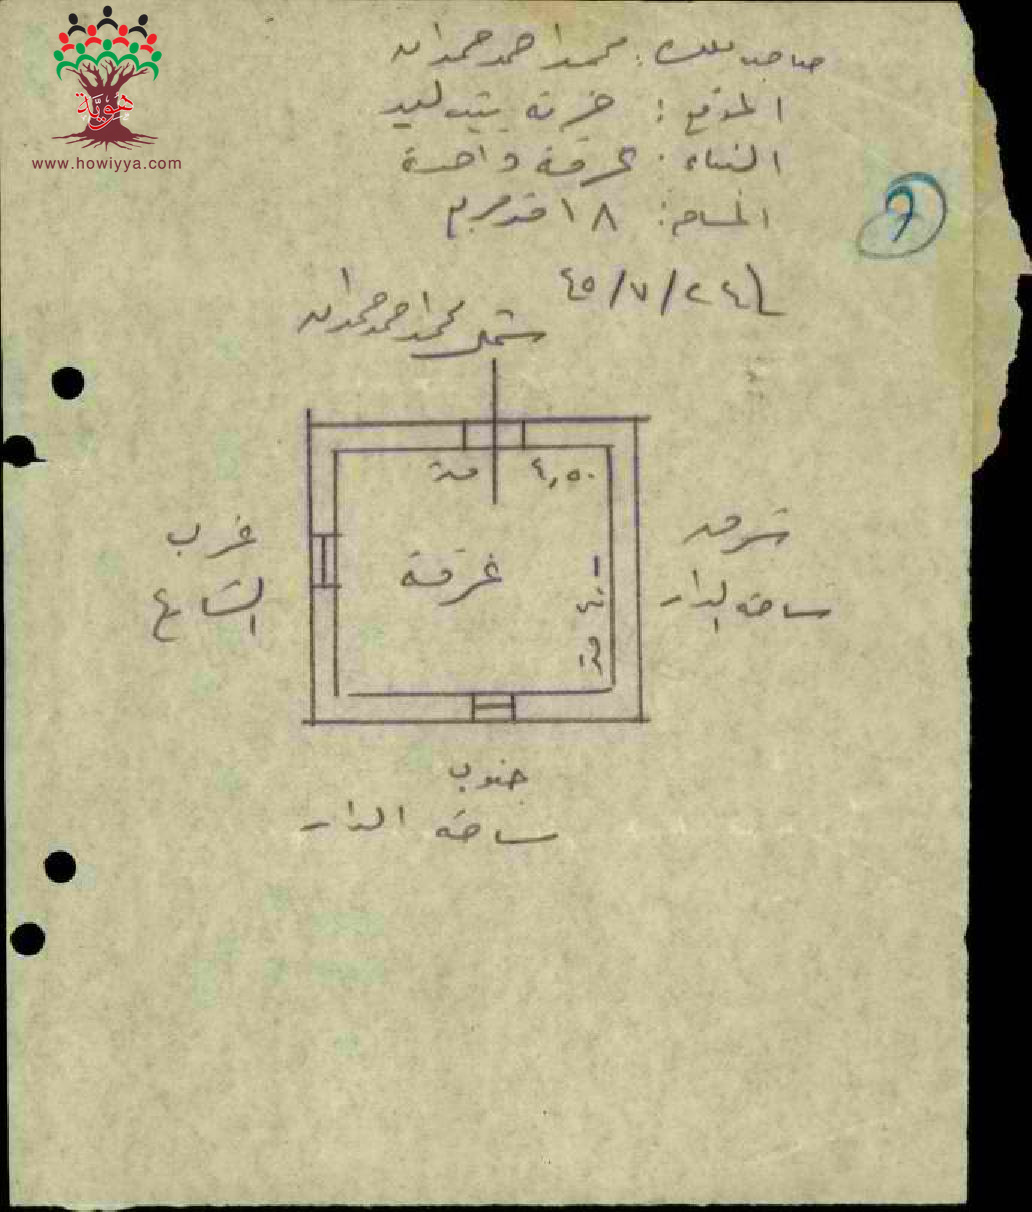 هوية
www.howiyya.com
صاحب الملك: محمد احمد حمدان
الموقع: خربة بيت ليد
البناء: غرفة واحدة
المساحة: ١٨ متر مربع
٢٤/٧/٤٥
شمال محمد احمد حمدان
٤,٥٠ متر
غرب
الشارع
غرفة
شرق
ساحة الدار
متر
جنوب
ساحة الدار